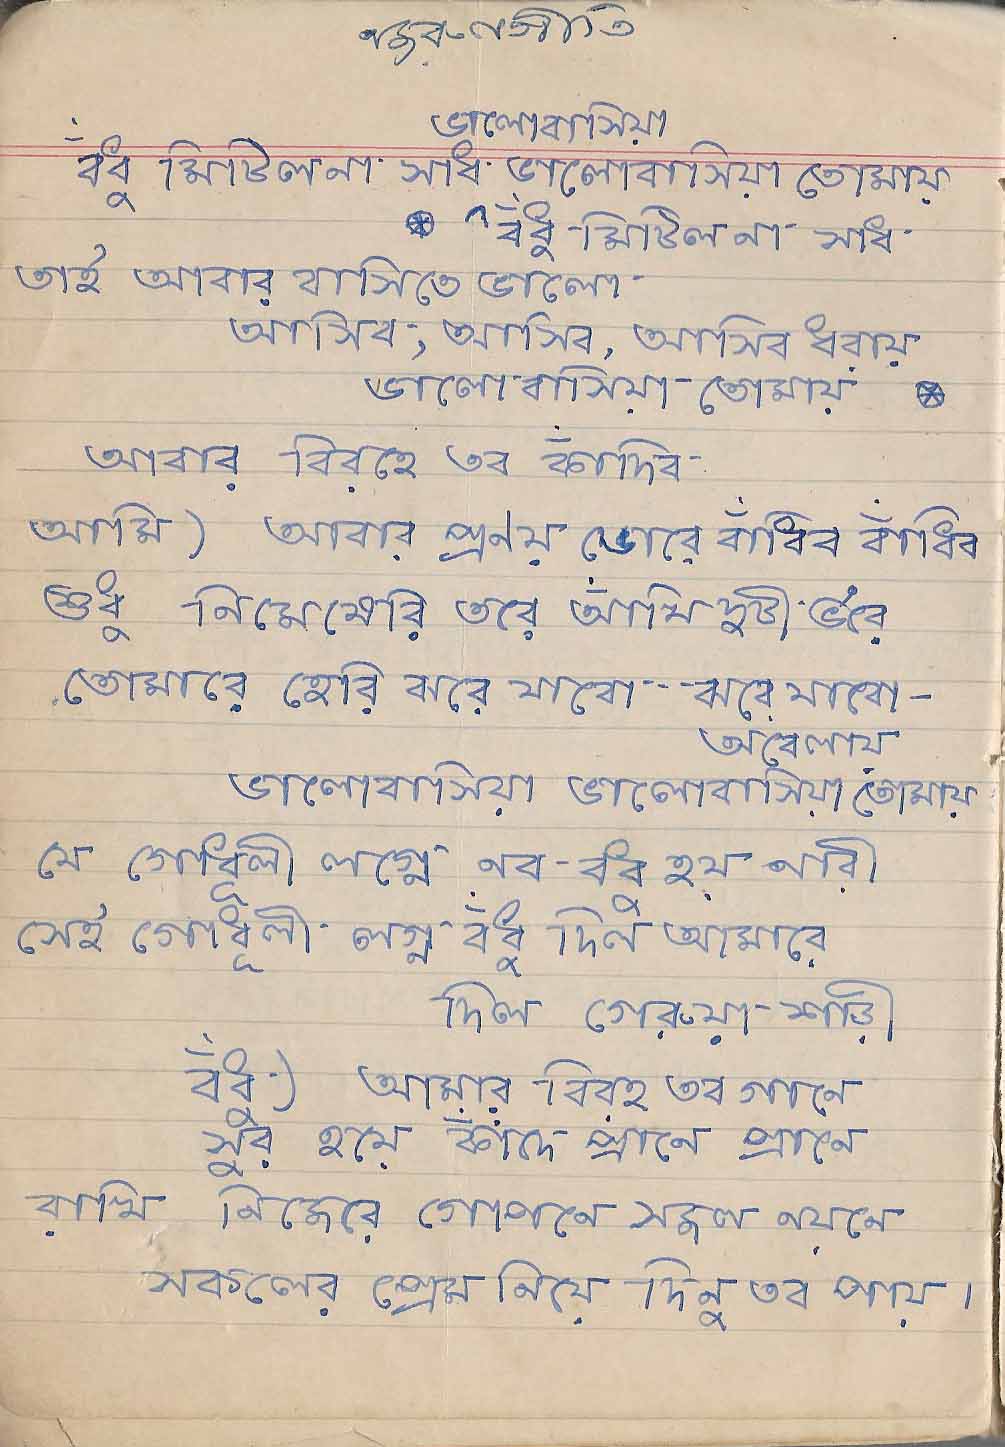 নজরুলগীতি
ভালোবাসিয়া
বঁধু মিটিলনা সাধ ভালোবাসিয়া তোমায়
বঁধু মিটিলনা সাধ
তাই আবার বাসিতে ভালো
আসিব, আসিব, আসিব ধরায়
ভালোবাসিয়া তোমায়
আবার বিরহে তব কাঁদিব
আমি) আবার প্রণয় ডোরে বাঁধিব বাঁধিব
শুধু নিমেষেরি তরে আঁখি দুটী ভরে
তোমারে হেরি ঝরে যাবো ঝরে যাবো
অবেলায়
ভালোবাসিয়া ভালোবাসিয়া তোমায়
যে গোধূলী লগ্নে নব-বধু হয় নারী
সেই গোধূলী লগ্ন বঁধু দিল আমারে
দিল গেরুয়া শাড়ী
বঁধু) আমার বিরহ তব গানে
সুর হয়ে কাঁদে প্রানে প্রানে
রাখি নিজেরে গোপনে সজল নয়নে
সকলের প্রেম নিয়ে দিনু তব পায়।